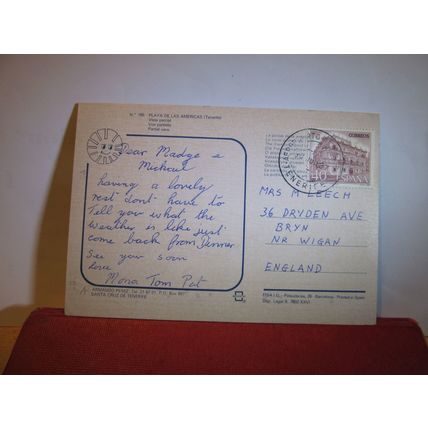 N.° 195 PLAYA DE LAS AMERICAS (Tenerife)
Vista parcial
Vue partielle
Partial view
Dear Madge &
Michael
having a lovely
rest dont have to
Tell you what the
weather is like just
come back from Dinner
See you soon
love
Mona Tom Pat
CORREOS
40
ESPAÑA
TENERIFE
MRS M LEECH
36 DRYDEN AVE
BRYN
NR WIGAN
ENGLAND
ARMANDO PEREZ
SANTA CRUZ DE TENERIFE
Barcelona - Printed in Spain
Dep. Legal B.